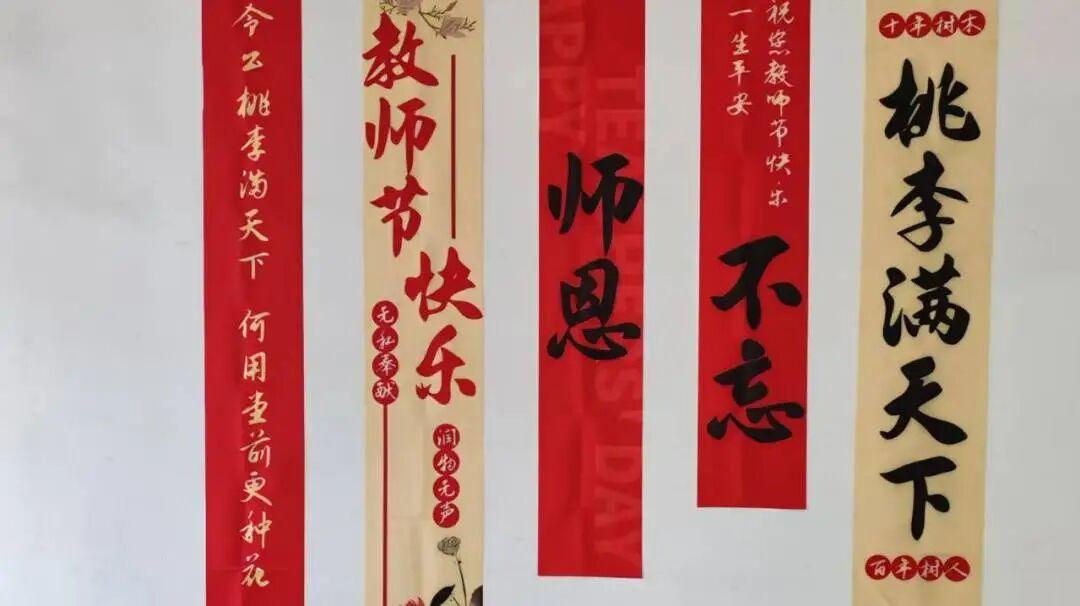 令公桃李满天下 何用堂前更种花
教师节快乐
无私奉献
润物无声
HAPPY
TEACHERS' DAY
师恩
祝您教师节快乐
一生平安
不忘
十年树木
桃李满天下
百年树人